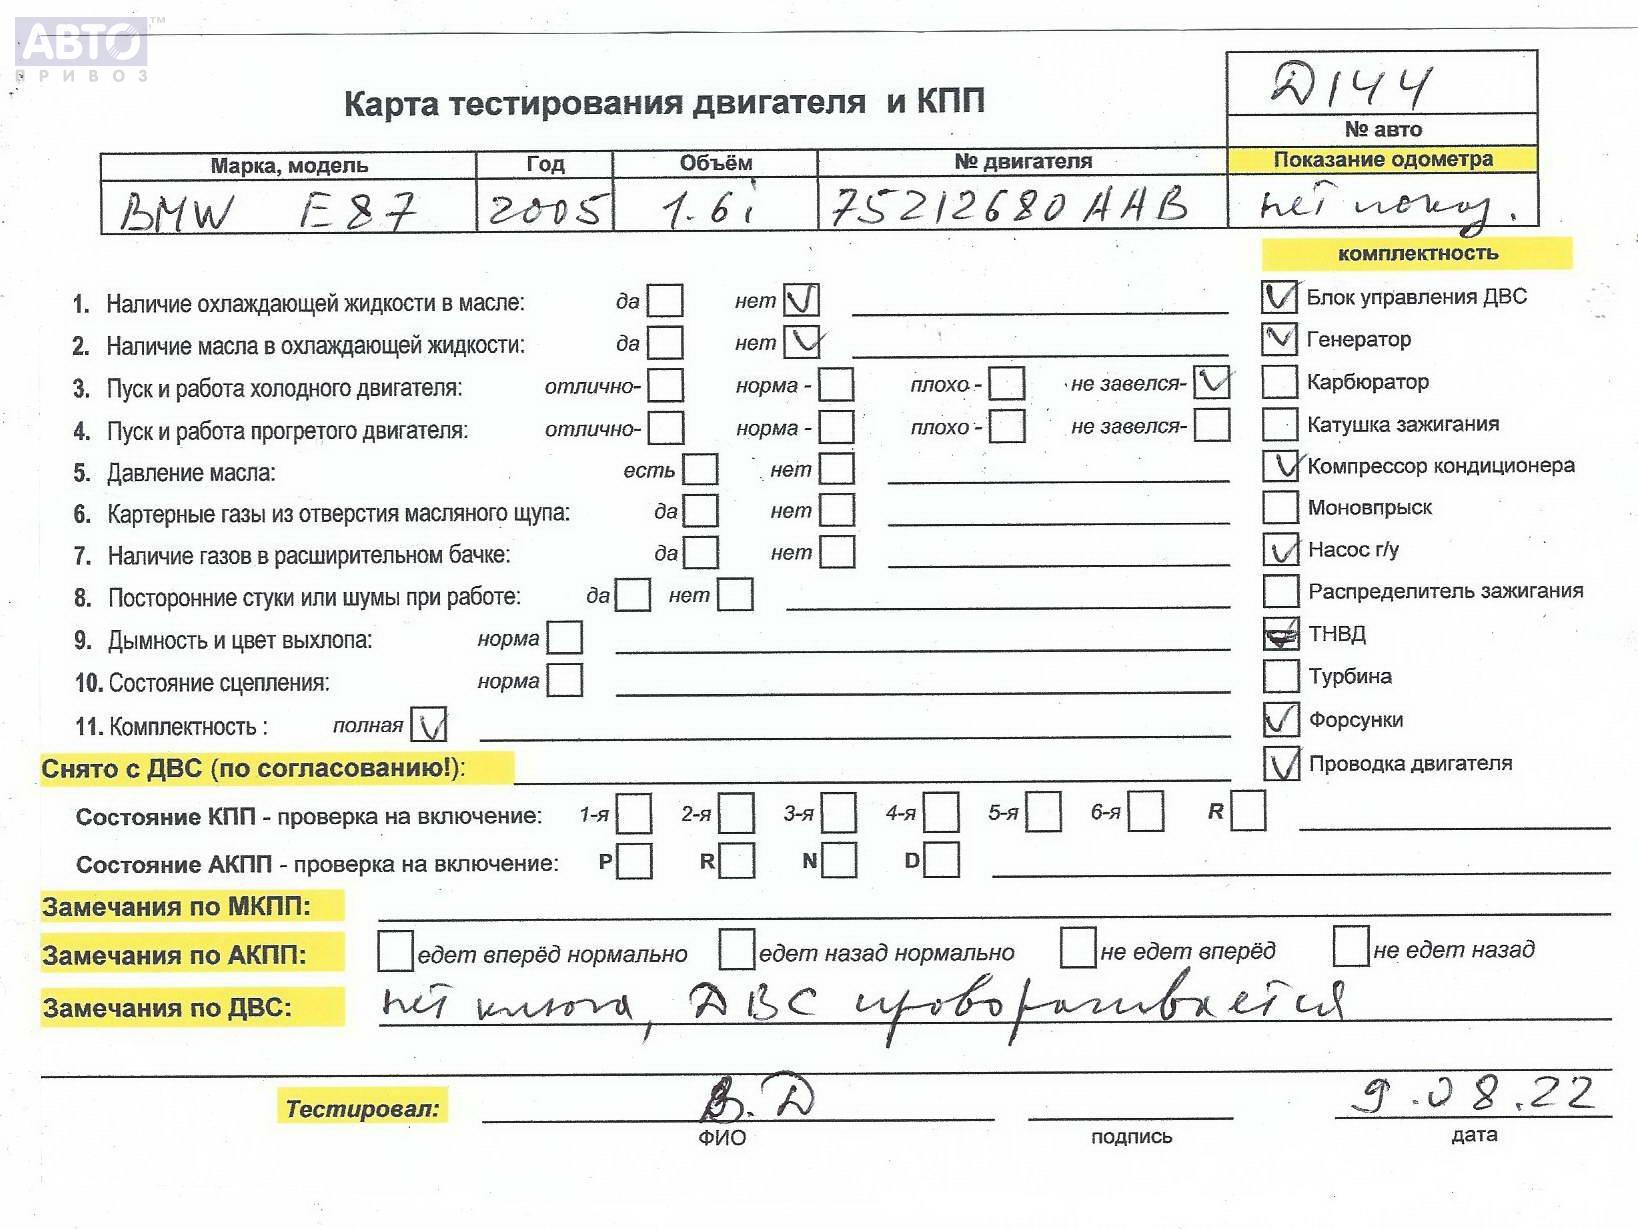 АВТО™
ПРИВОЗ
Д144
№ авто
Карта тестирования двигателя и КПП
Марка, модель Год Объём № двигателя Показание одометра
BMW E87 2005 1.6i 75212680AAB нет показ.
комплектность
1. Наличие охлаждающей жидкости в масле: да нет Блок управления ДВС
2. Наличие масла в охлаждающей жидкости: да нет Генератор
3. Пуск и работа холодного двигателя: отлично- норма - плохо - не завелся- Карбюратор
4. Пуск и работа прогретого двигателя: отлично- норма - плохо - не завелся- Катушка зажигания
5. Давление масла: есть нет Компрессор кондиционера
6. Картерные газы из отверстия масляного щупа: да нет Моновпрыск
7. Наличие газов в расширительном бачке: да нет Насос г/у
8. Посторонние стуки или шумы при работе: да нет Распределитель зажигания
9. Дымность и цвет выхлопа: норма ТНВД
10. Состояние сцепления: норма Турбина
11. Комплектность : полная Форсунки
Снято с ДВС (по согласованию!): Проводка двигателя
Состояние КПП - проверка на включение: 1-я 2-я 3-я 4-я 5-я 6-я R
Состояние АКПП - проверка на включение: P R N D
Замечания по МКПП:
Замечания по АКПП: едет вперёд нормально едет назад нормально не едет вперёд не едет назад
Замечания по ДВС: нет ключа, ДВС проворачивается
Тестировал: В.Д 9.08.22
ФИО подпись дата